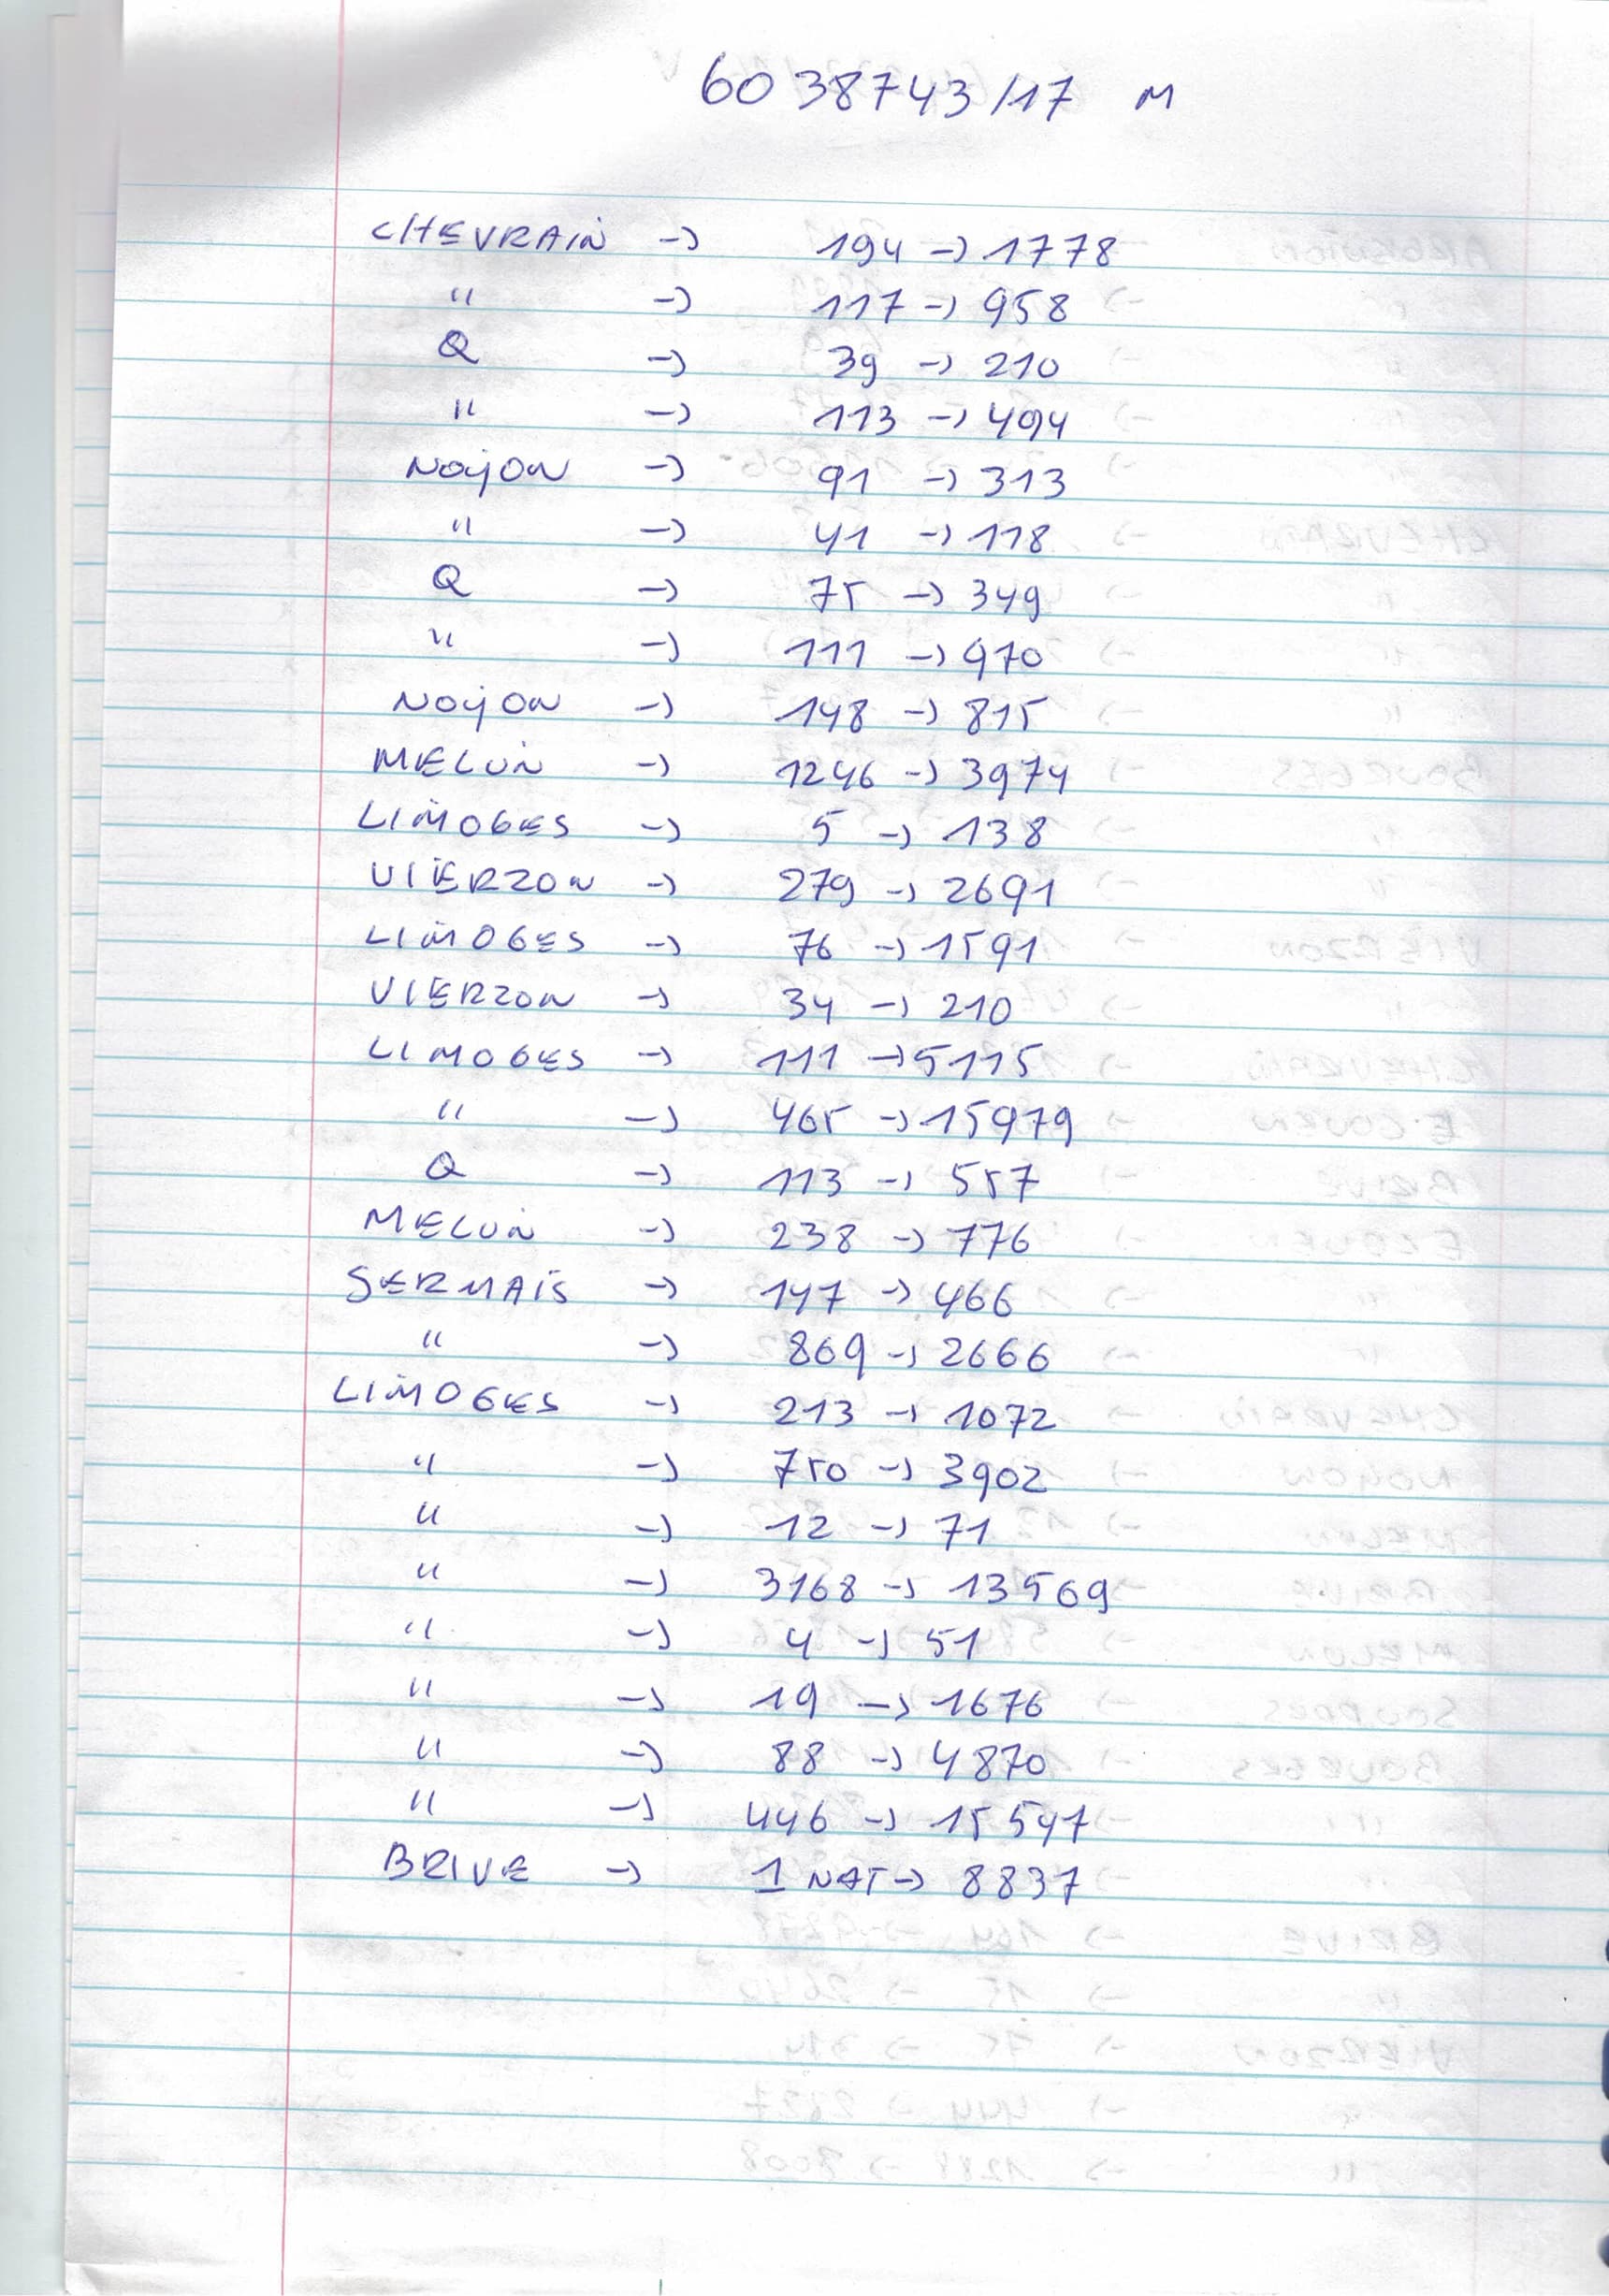 6038743/17 M
CHEVRAIN -> 194 -> 1778
" -> 117 -> 958
Q -> 39 -> 210
" -> 113 -> 494
NOYON -> 91 -> 313
" -> 41 -> 118
Q -> 75 -> 349
" -> 111 -> 970
NOYON -> 148 -> 815
MELUN -> 1246 -> 3974
LIMOGES -> 5 -> 138
VIERZON -> 279 -> 2691
LIMOGES -> 76 -> 1591
VIERZON -> 34 -> 210
LIMOGES -> 111 -> 5115
" -> 465 -> 15979
Q -> 113 -> 557
MELUN -> 238 -> 776
SERMAIS -> 147 -> 466
" -> 869 -> 2666
LIMOGES -> 213 -> 1072
" -> 750 -> 3902
" -> 12 -> 71
" -> 3168 -> 13569
" -> 4 -> 51
" -> 19 -> 1676
" -> 88 -> 4870
" -> 446 -> 15547
BRIVE -> 1 NAT -> 8837